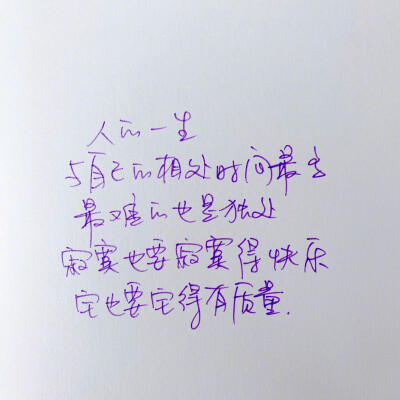 人的一生
与自己的相处时间最长
最难的也是独处
寂寞也要寂寞得快乐
宅也要宅得有质量.